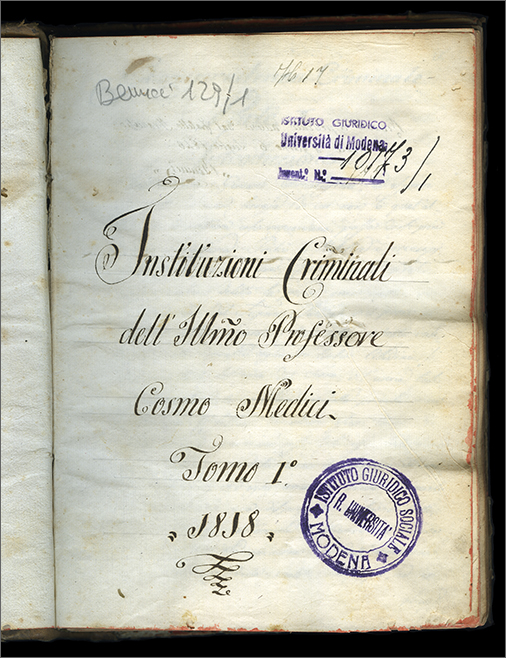 129/1
ISTITUTO GIURIDICO
Università di Modena
Invent.º N.º 10173/1
Instituzioni Criminali
dell' Illmo Professore
Cosmo Medici
Tomo 1º
1818
ISTITUTO GIURIDICO SOCIALE
R. UNIVERSITA'
MODENA